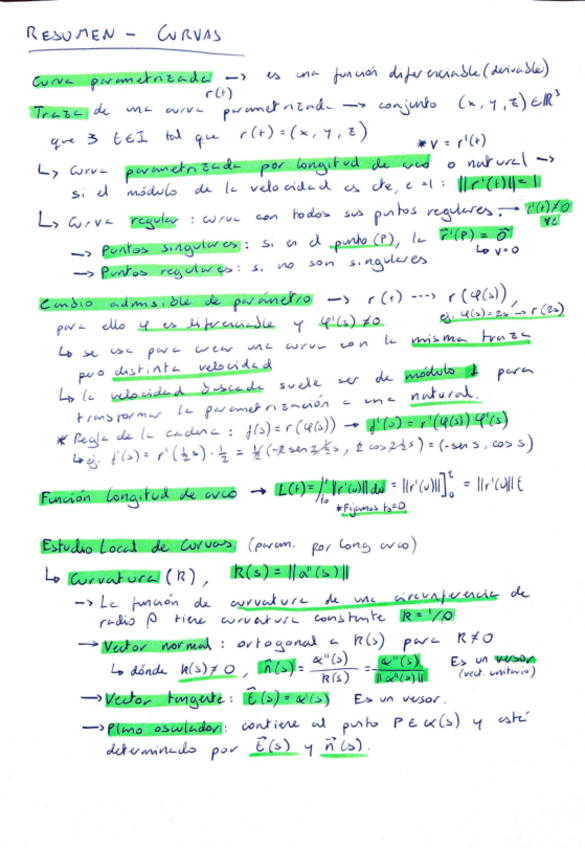 RESUMEN - CURVAS
Curva parametrizada → es una función diferenciable (derivable)
r(t)
Traza de una curva parametrizada → conjunto (x, y, z) ∈ ℝ³
que ∃ t∈I tal que r(t) = (x, y, z)
* v = r'(t)
↳ Curva parametrizada por longitud de arco o natural →
si el módulo de la velocidad es cte, c = 1: ||r'(t)|| = 1
↳ Curva regular: curva con todos sus puntos regulares. → r'(t) ≠ 0
→ Puntos singulares: si en el punto (P), la r⃗'(P) = 0⃗
↳ v=0
→ Puntos regulares: si no son singulares
Cambio admisible de parámetro → r(t) ---> r(φ(s)),
para ello φ es diferenciable y φ'(s) ≠ 0
ej. φ(s)=2s → r(2s)
↳ se usa para crear una curva con la misma traza
pero distinta velocidad
↳ la velocidad buscada suele ser de módulo 1 para
transformar la parametrización a una natural.
* Regla de la cadena: f(s) = r(φ(s)) → f'(s) = r'(φ(s)) φ'(s)
↳ ej. f'(s) = r'(½s)·½ = ½(-2 sen 2½s, 2 cos 2½s) = (-sen s, cos s)
Función Longitud de arco → L(t) = ∫ₜ₀ᵗ ||r'(u)|| du = ||r'(u)||]₀ᵗ = ||r'(u)|| t
* Fijamos t₀=0
Estudio Local de Curvas (param. por long arco)
↳ Curvatura (K), K(s) = ||α''(s)||
→ La función de curvatura de una circunferencia de
radio ρ tiene curvatura constante K = 1/ρ
→ Vector normal: ortogonal a K(s) para K≠0
↳ dónde K(s) ≠ 0, n⃗(s) = α''(s)/K(s) = α''(s)/||α''(s)|| Es un versor
(vect. unitario)
→ Vector tangente: t⃗(s) = α'(s) Es un versor.
→ Plano osculador: contiene al punto P ∈ α(s) y está
determinado por t⃗(s) y n⃗(s).